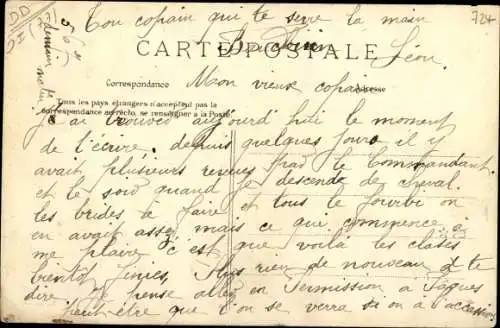 Ton copain qui te serre la main
Léon.
CARTE POSTALE
Correspondance
Adresse
Tous les pays étrangers n'acceptent pas la
correspondance au recto, se renseigner à la Poste.
Mon vieux copain
J'ai trouvé aujourd'hui le moment
de t'écrire. depuis quelques jours il y
avait plusieurs revues par le Commandant.
et le soir quand je descends de cheval.
les brides à faire et tous le fourbi on
en avait assez, mais ce qui commence à
me plaire c'est que voilà les classes
bientôt finies. Plus rien de nouveau à te
dire. Je pense aller en Permission à Pâques
peut-être que l'on se verra si on a l'occasion
724